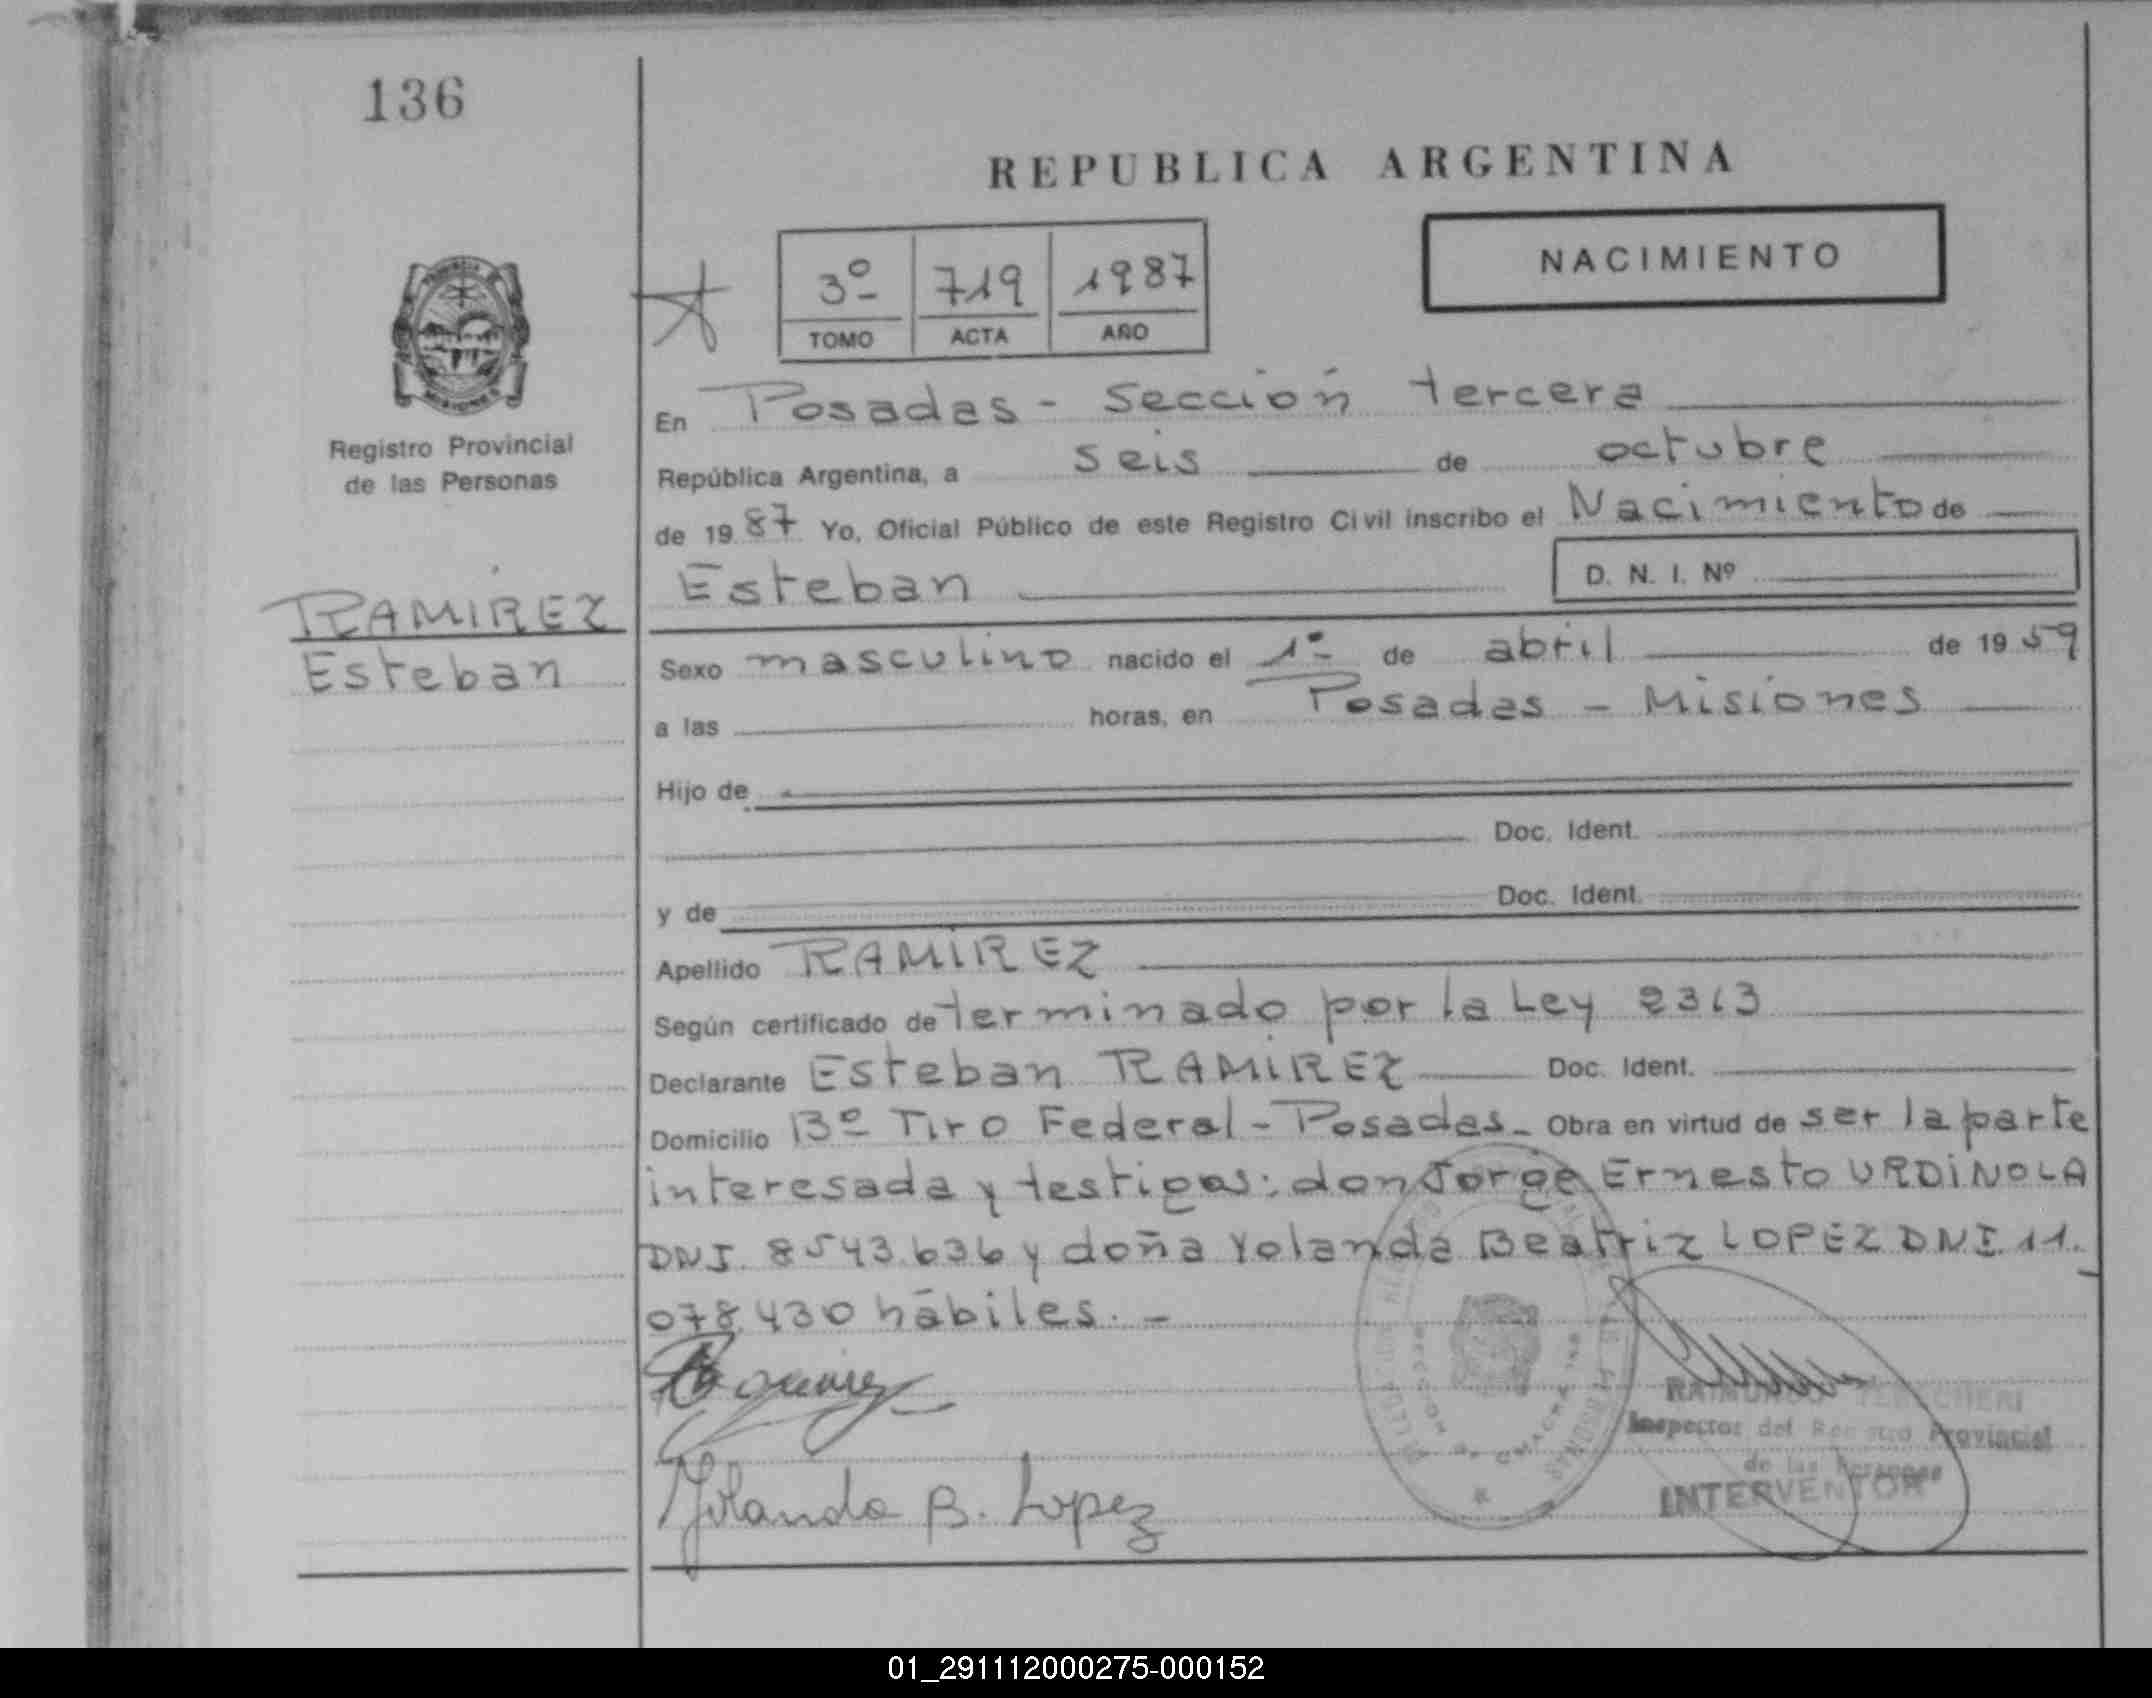 136
REPUBLICA ARGENTINA
NACIMIENTO
3º 719 1987
TOMO ACTA AÑO
Registro Provincial
de las Personas
RAMIREZ
Esteban
En Posadas - Sección tercera
República Argentina, a seis de octubre
de 1987 Yo, Oficial Público de este Registro Civil inscribo el Nacimiento de
Esteban D. N. I. Nº
Sexo masculino nacido el 1º de abril de 1959
a las horas, en Posadas - Misiones
Hijo de
Doc. Ident.
y de Doc. Ident.
Apellido RAMIREZ
Según certificado de terminado por la Ley 2313
Declarante Esteban RAMIREZ Doc. Ident.
Domicilio Bº Tiro Federal - Posadas - Obra en virtud de ser la parte
interesada y testigos: don Jorge Ernesto URDINOLA
DNI. 8543.636 y doña Yolanda Beatriz LOPEZ DNI 11.
078.430 hábiles. -
Yolanda B. Lopez
Inspector del Registro Provincial
de las Personas
INTERVENTOR
01_291112000275-000152